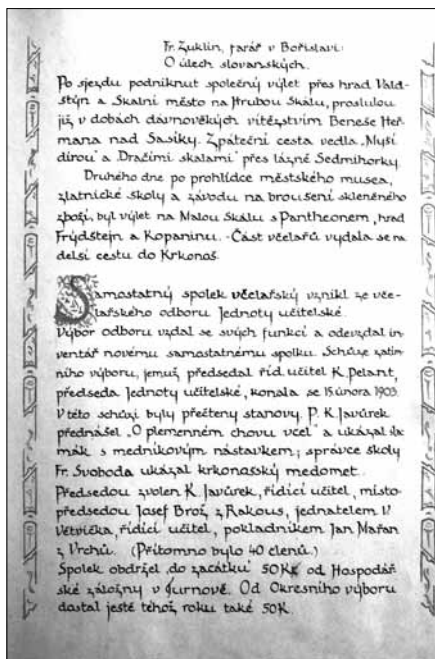 Fr. Žuklin, farář v Bořislavi:
O úlech slovanských.
Po sjezdu podniknut společný výlet přes hrad Vald-
štýn a Skalní město na Hrubou Skálu, proslulou
již v dobách dávnověkých vítězstvím Beneše Heř-
mana nad Sasíky. Zpáteční cesta vedla „Myší
dírou" a Dračími skalami přes lázně Sedmihorky.
Druhého dne po prohlídce městského musea,
zlatnické školy a závodu na broušení skleněného
zboží, byl výlet na Malou Skálu s Pantheonem, hrad
Frýdštejn a Kopaninu. - Část včelařů vydala se na
delší cestu do Krkonoš.
Samostatný spolek včelařský vznikl ze vče-
lařského odboru Jednoty učitelské.
Výbor odboru vzdal se svých funkcí a odevzdal in-
ventář novému samostatnému spolku. Schůze zatím-
ního výboru, jemuž předsedal říd. učitel K. Pelant,
předseda Jednoty učitelské, konala se 15. února 1903.
V této schůzi byly přečteny stanovy. P. K. Javůrek
přednášel „O plemenném chovu včel" a ukázal sla-
mák s medníkovým nástavkem; správce školy
Fr. Svoboda ukázal krkonošský medomet.
Předsedou zvolen K. Javůrek, řídící učitel, místo-
předsedou Josef Brož z Rakous, jednatelem V.
Větvička, řídící učitel, pokladníkem Jan Mařan
z Vrchů. (Přítomno bylo 40 členů.)
Spolek obdržel „do začátku" 50 K od Hospodář-
ské záložny v Turnově. Od Okresního výboru
dostal ještě téhož roku také 50 K.